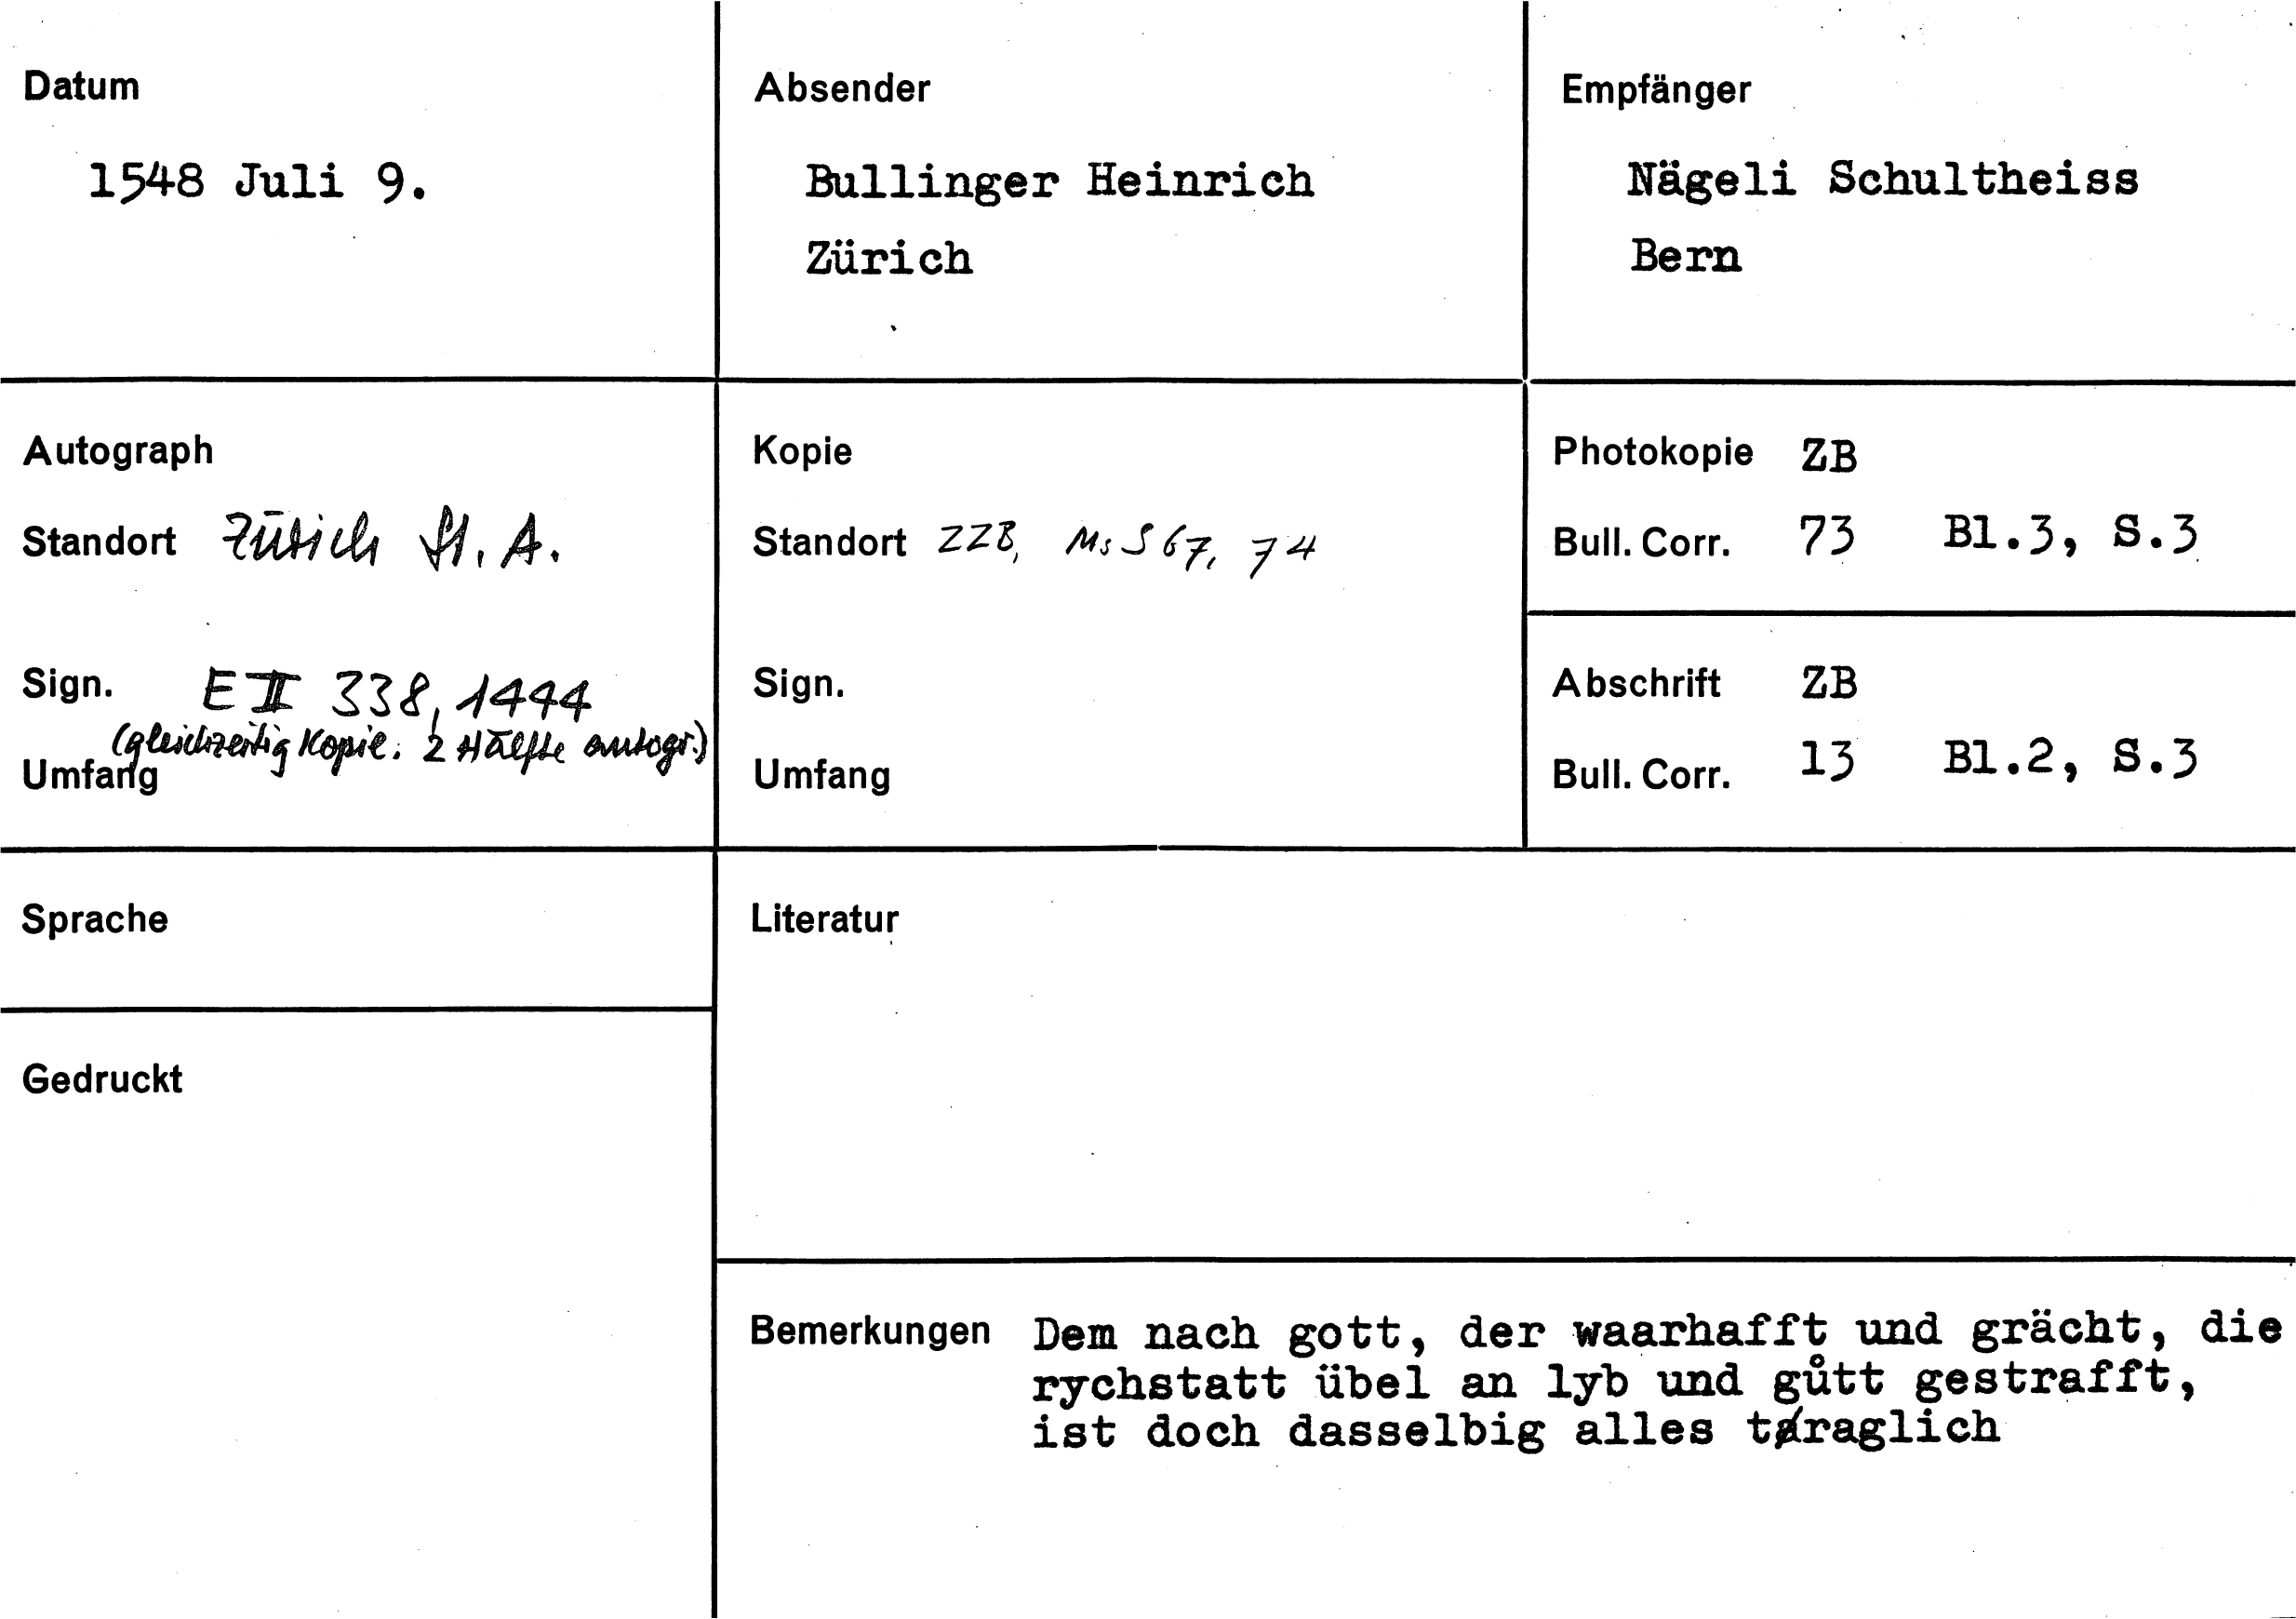 Datum
1548 Juli 9.
Absender
Bullinger Heinrich
Zürich
Empfänger
Nägeli Schultheiss
Bern
Autograph
Standort Zürich St. A.
Sign. E II 338, 1444
(gleichzeitig Kopie. 2 Hälfte autogr.)
Umfang
Kopie
Standort ZZB, Ms S 67, 74
Sign.
Umfang
Photokopie ZB
Bull. Corr. 73 Bl.3, S.3
Abschrift ZB
Bull. Corr. 13 Bl.2, S.3
Sprache
Literatur
Gedruckt
Bemerkungen Dem nach gott, der waarhafft und grächt, die
rychstatt übel an lyb und gůtt gestrafft,
ist doch dasselbig alles traglich